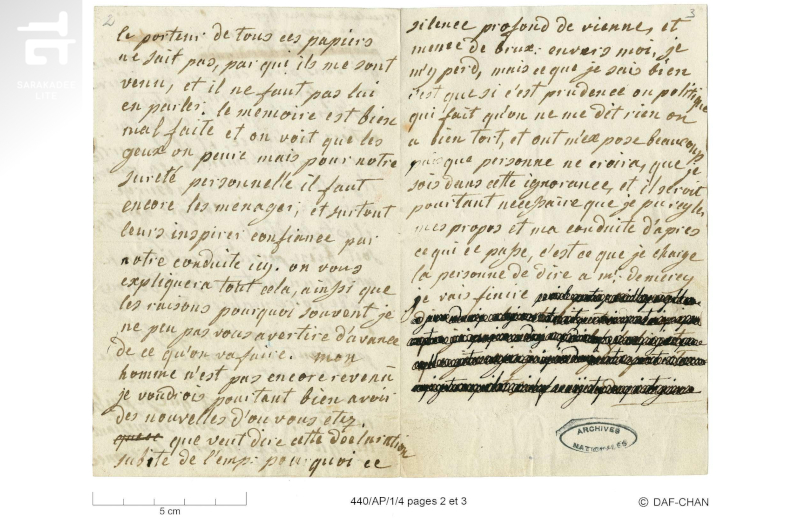 2
le porteur de tous ces papiers
ne sait pas, par qui ils me sont
venu, et il ne faut pas lui
en parler. le memoire est bien
mal faite et on voit que les
geux on peure mais pour notre
sureté personnelle il faut
encore les menager, et surtout
leurs inspirer confiance par
notre conduite icy. on vous
expliquera tout cela, ainsi que
les raisons pourquoi souvent je
ne peu pas vous avertire d'avance
de ce qu'on va faire. mon
homme n'est pas encore revenu
je voudrois pourtant bien avoir
des nouvelles d'ou vous etez.
que veut dire cette declaration
subite de l'emp: pourquoi ce
3
silence profond de vienne, et
meme de brux: envers moi, je
m'y perd, mais ce que je sais bien
c'est que si c'est prudence ou politique
qui fait qu'on ne me dit rien on
a bien tort, et ont m'expose beaucoup
puisque personne ne croira, que je
sois dans cette ignorance, et il seroit
pourtant necessaire que je puisse
mes propos et ma conduite d'apres
ce qui ce passe, c'est ce que je charge
la personne de dire a mr. de mercy
je vais finire
ARCHIVES
NATIONALES
SARAKADEE
LITE
5 cm
440/AP/1/4 pages 2 et 3
© DAF-CHAN